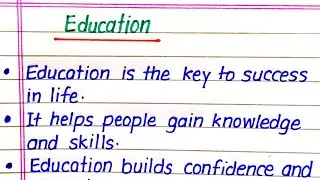 Education
• Education is the key to success
in life.
• It helps people gain knowledge
and skills.
• Education builds confidence and